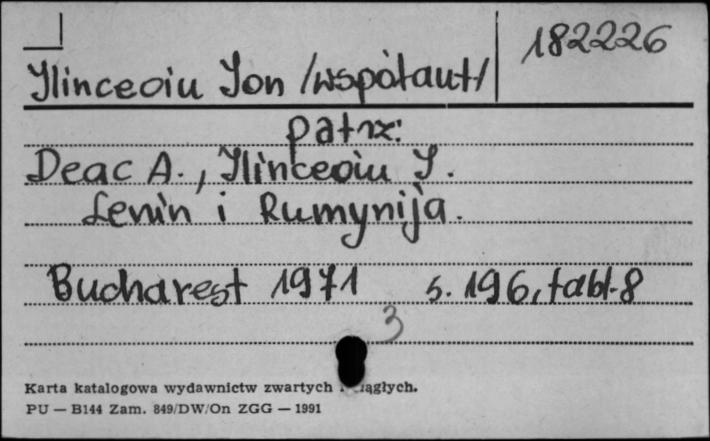 182226
Ilinceoiu Ion /współaut/
patrz:
Deac A., Ilinceoiu I.
Lenin i Rumynija.
Bucharest 1971 s. 196, tabl. 8
3
Karta katalogowa wydawnictw zwartych
PU — B144 Zam. 849/DW/On ZGG — 1991